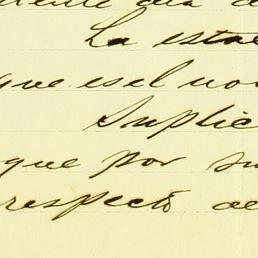 La esta
que es el no
Suplic
que por su
respecto de